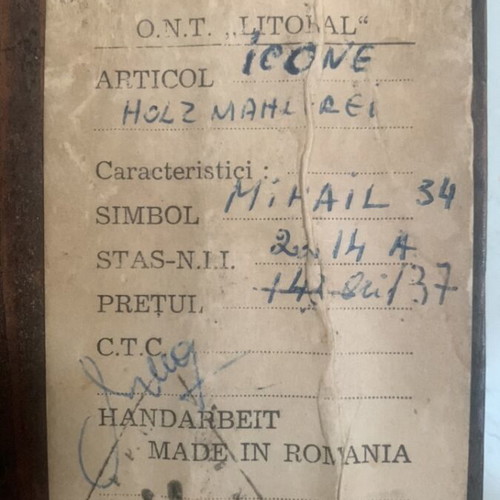 O.N.T. „LITORAL“
ICONE
ARTICOL
HOLZMAHLEREI
Caracteristici :
SIMBOL MIHAIL 34
STAS-N.I.I. 14 A
PREȚUL 137
C.T.C.
HANDARBEIT
MADE IN ROMANIA